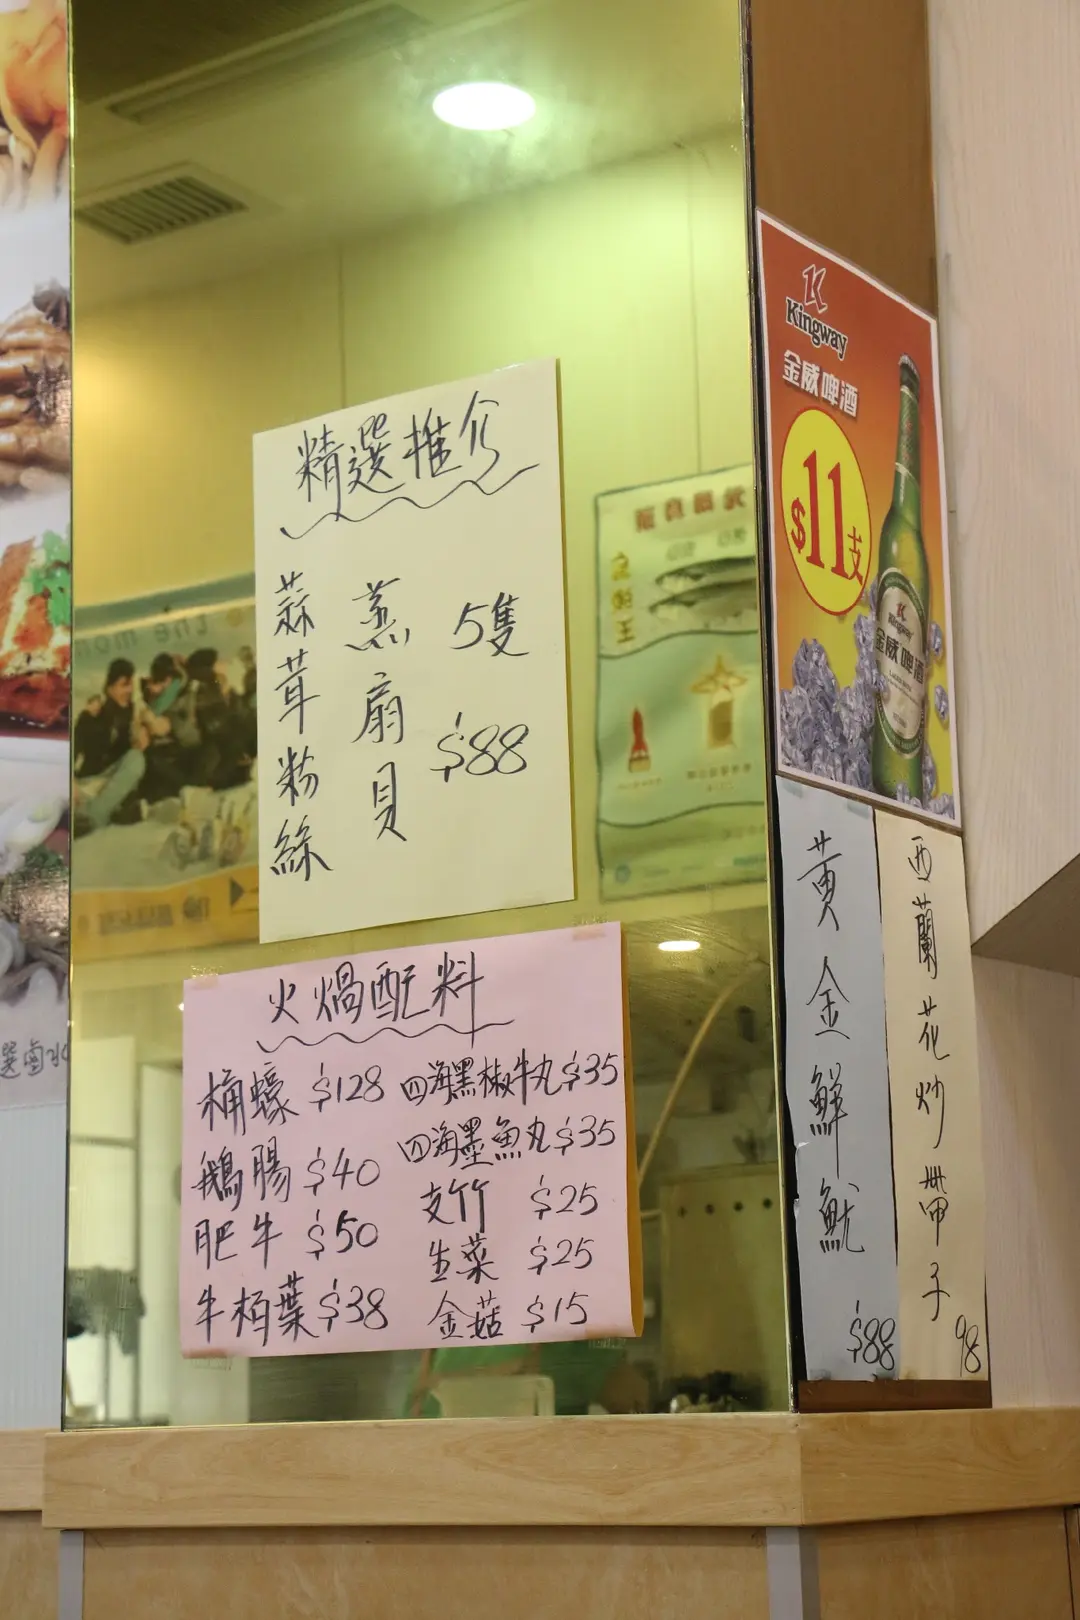 精選推介
蒜茸粉絲
蒸扇貝
5隻
$88
火煱配料
桶蠔 $128
鵝腸 $40
肥牛 $50
牛栢葉 $38
四海黑椒牛丸 $35
四海墨魚丸 $35
支竹 $25
生菜 $25
金菇 $15
Kingway
金威啤酒
$11支
Kingway
金威啤酒
黄金鮮魷
$88
西蘭花炒帶子
98
選鹵水